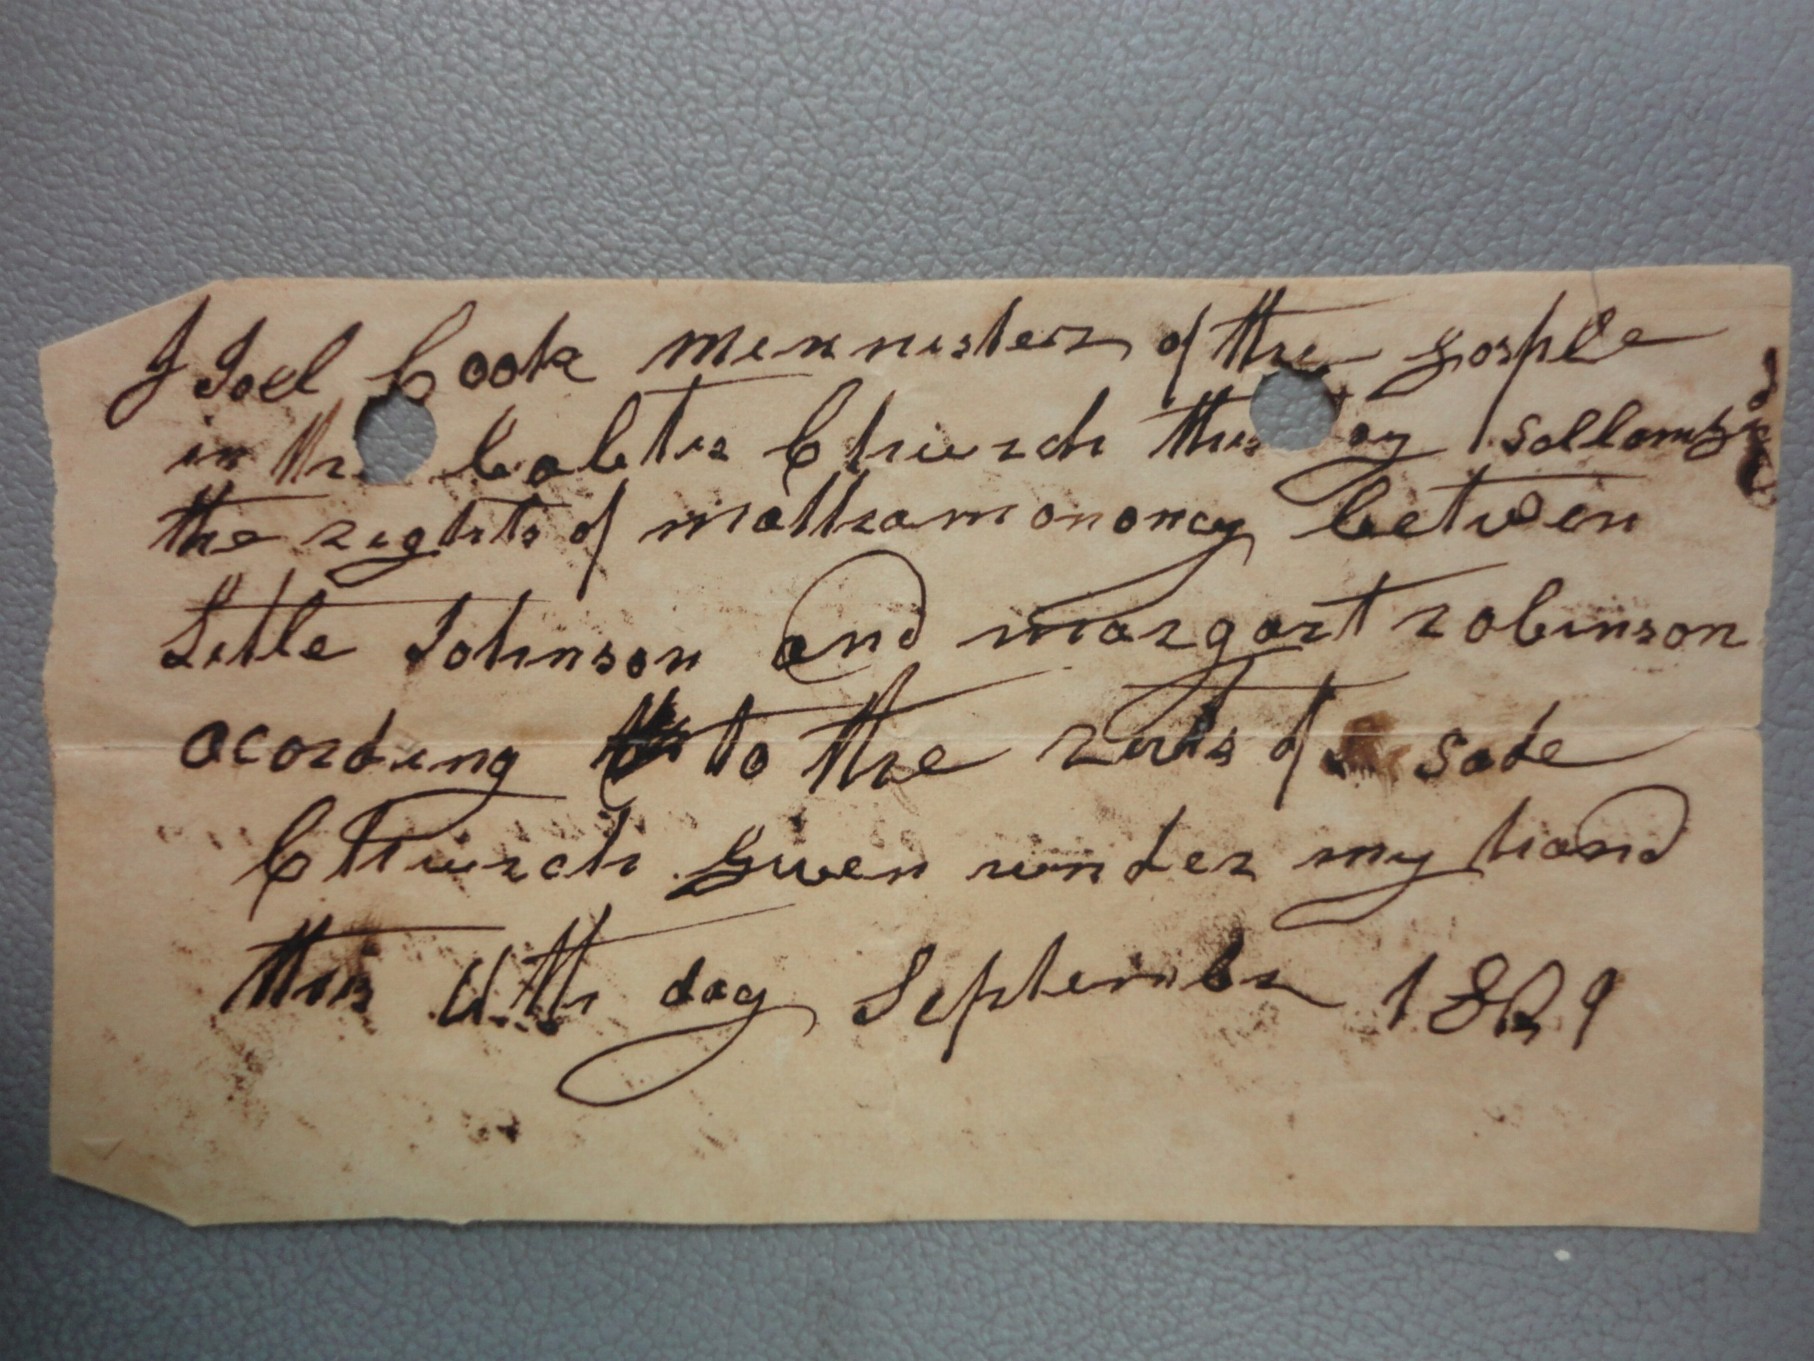 I Joel Cook mennister of the gosple
in the babtis Church this day sollomb
the rights of mathamonony between
Litle Johnson and margart robinson
acording to the ruls of sade
Church Given under my hand
this 11th day September 1829